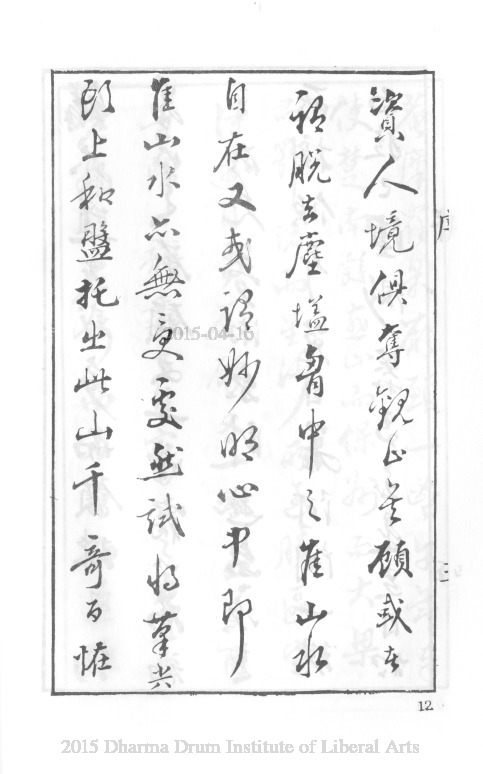 資人境俱奪觀止矣顧或者
謂脫去塵壒胷中之崔山水
自在又或謂妙明心中即
崔山水亦無更處然試將筆尖
頭上和盤托出此山千奇百恠
序
三
2015-04-16
12
2015 Dharma Drum Institute of Liberal Arts